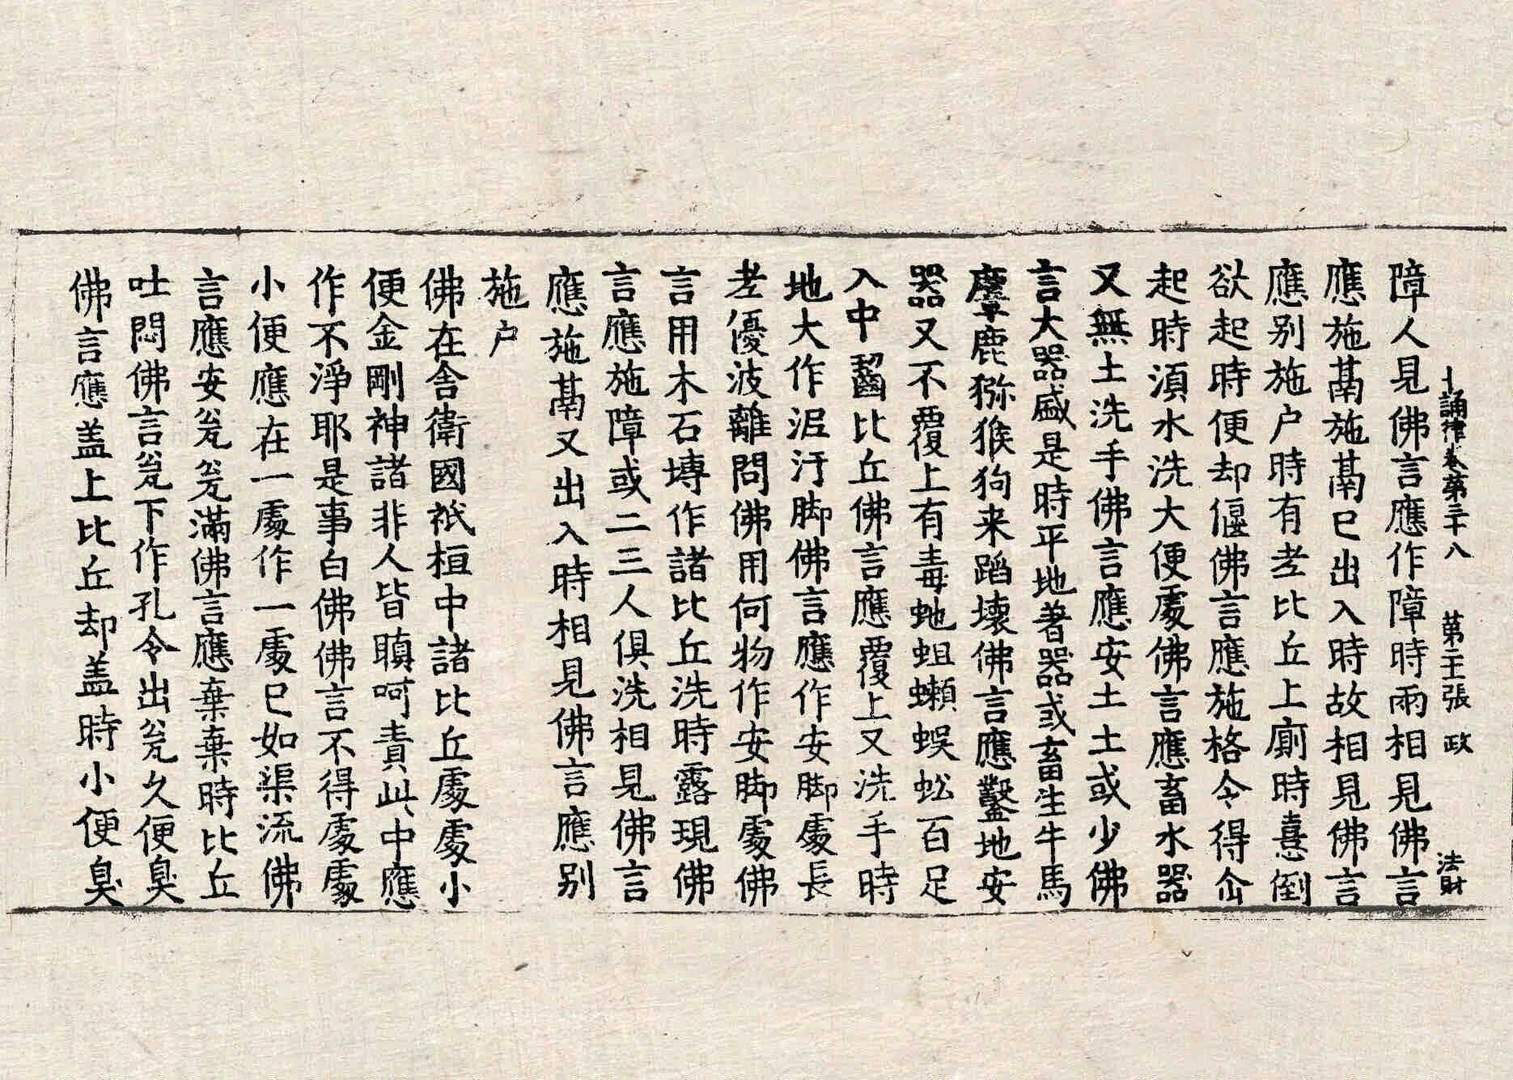 十誦律卷第三十八　第二十張　政　法財
障人見佛言應作障時雨相見佛言
應施鬲施鬲已出入時故相見佛言
應別施户時有老比丘上廁時憙倒
欲起時便却偃佛言應施格令得㕘
起時湏水洗大便處佛言應畜水器
又無土洗手佛言應安土土或少佛
言大器盛是時平地著器或畜生牛馬
麞鹿猕猴狗来蹈壊佛言應鑿地安
器又不覆上有毒虵蛆蠍蜈蚣百足
入中齧比丘佛言應覆上又洗手時
地大作泥汙脚佛言應作安脚處長
老優波離問佛用何物作安脚處佛
言用木石塼作諸比丘洗時露現佛
言應施障或二三人俱洗相見佛言
應施鬲又出入時相見佛言應別
施户
佛在舎衛國祇桓中諸比丘處處小
便金剛神諸非人皆瞋呵責此中應
作不淨耶是事白佛佛言不得處處
小便應在一處作一處已如渠流佛
言應安瓫瓫滿佛言應棄棄時比丘
吐悶佛言瓫下作孔令出瓫久便臭
佛言應盖上比丘却盖時小便臭